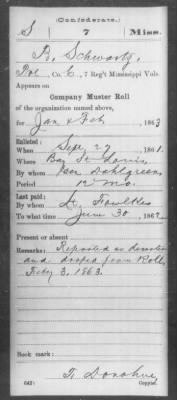 (Confederate.)
S 7 Miss.
R. Schwartz
Pvt., Co. C, 7 Reg't Mississippi Vols.
Appears on
Company Muster Roll
of the organization named above,
for Jan & Feb, 1863.
Enlisted:
When Sept 27, 1861.
Where Bay St. Louis
By whom Dahlgreen
Period 12 Mo.
Last paid:
By whom Lt. Fowlkes
To what time June 30, 1862.
Present or absent
Remarks: Reported as deserter
and droped from Rolls
Feby 3, 1863.
Book mark:
Donohue
(642) Copyist.